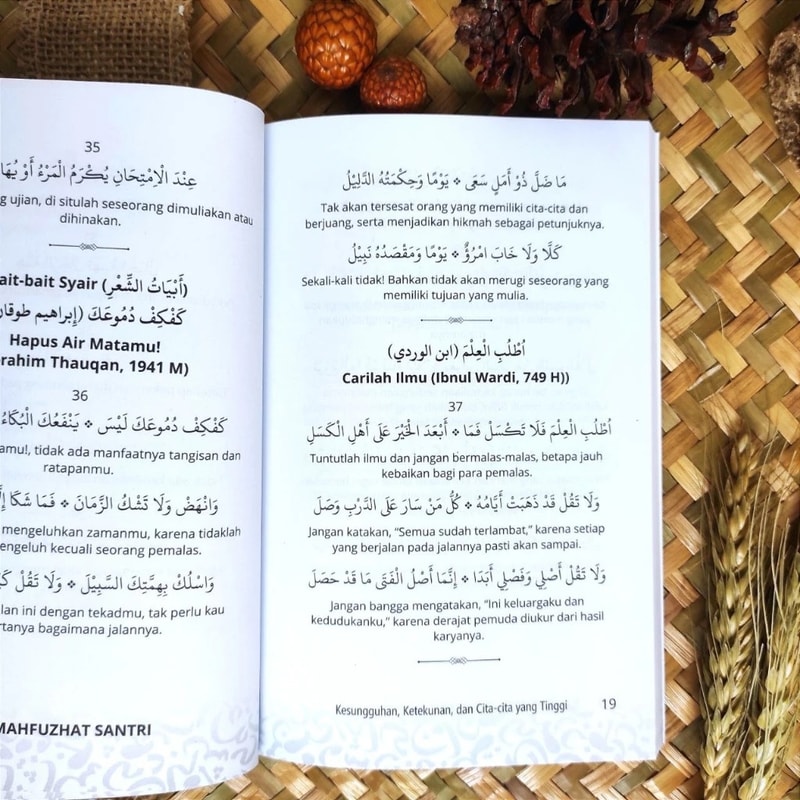 35
عِنْدَ الْاِمْتِحَانِ يُكْرَمُ الْمَرْءُ أَوْ
ujian, di situlah seseorang dimuliakan atau
dihinakan.
Syair (أَبْيَاتُ الشِّعْرِ)
كَفْكِفْ دُمُوعَكَ (إبراهيم
Hapus Air Matamu!
Thauqan, 1941 M)
36
كَفْكِفْ دُمُوعَكَ لَيْسَ ٭ يَنْفَعُكَ الْبُكَاءُ
tidak ada manfaatnya tangisan dan
ratapanmu.
وَانْهَضْ وَلَا تَشْكُ الزَّمَانَ ٭ فَمَا شَكَا
mengeluhkan zamanmu, karena tidaklah
kecuali seorang pemalas.
وَاسْلُكْ بِهِمَّتِكَ السَّبِيْلَ ٭ وَلَا تَقُلْ
ini dengan tekadmu, tak perlu kau
bagaimana jalannya.
MAHFUZHAT SANTRI
مَا ضَلَّ ذُو أَمَلٍ سَعَى ٭ يَوْمًا وَحِكْمَتُهُ الدَّلِيْلُ
Tak akan tersesat orang yang memiliki cita-cita dan
berjuang, serta menjadikan hikmah sebagai petunjuknya.
كَلَّا وَلَا خَابَ امْرُؤٌ ٭ يَوْمًا وَمَقْصَدُهُ نَبِيْلُ
Sekali-kali tidak! Bahkan tidak akan merugi seseorang yang
memiliki tujuan yang mulia.
اُطْلُبِ الْعِلْمَ (ابن الوردي)
Carilah Ilmu (Ibnul Wardi, 749 H))
37
اُطْلُبِ الْعِلْمَ فَلَا تَكْسَلْ فَمَا ٭ أَبْعَدَ الْخَيْرَ عَلَى أَهْلِ الْكَسَلِ
Tuntutlah ilmu dan jangan bermalas-malas, betapa jauh
kebaikan bagi para pemalas.
وَلَا تَقُلْ قَدْ ذَهَبَتْ أَيَّامُهُ ٭ كُلُّ مَنْ سَارَ عَلَى الدَّرْبِ وَصَلَ
Jangan katakan, “Semua sudah terlambat,” karena setiap
yang berjalan pada jalannya pasti akan sampai.
وَلَا تَقُلْ أَصْلِي وَفَصْلِي أَبَدًا ٭ إِنَّمَا أَصْلُ الْفَتَى مَا قَدْ حَصَلَ
Jangan bangga mengatakan, “Ini keluargaku dan
kedudukanku,” karena derajat pemuda diukur dari hasil
karyanya.
Kesungguhan, Ketekunan, dan Cita-cita yang Tinggi 19